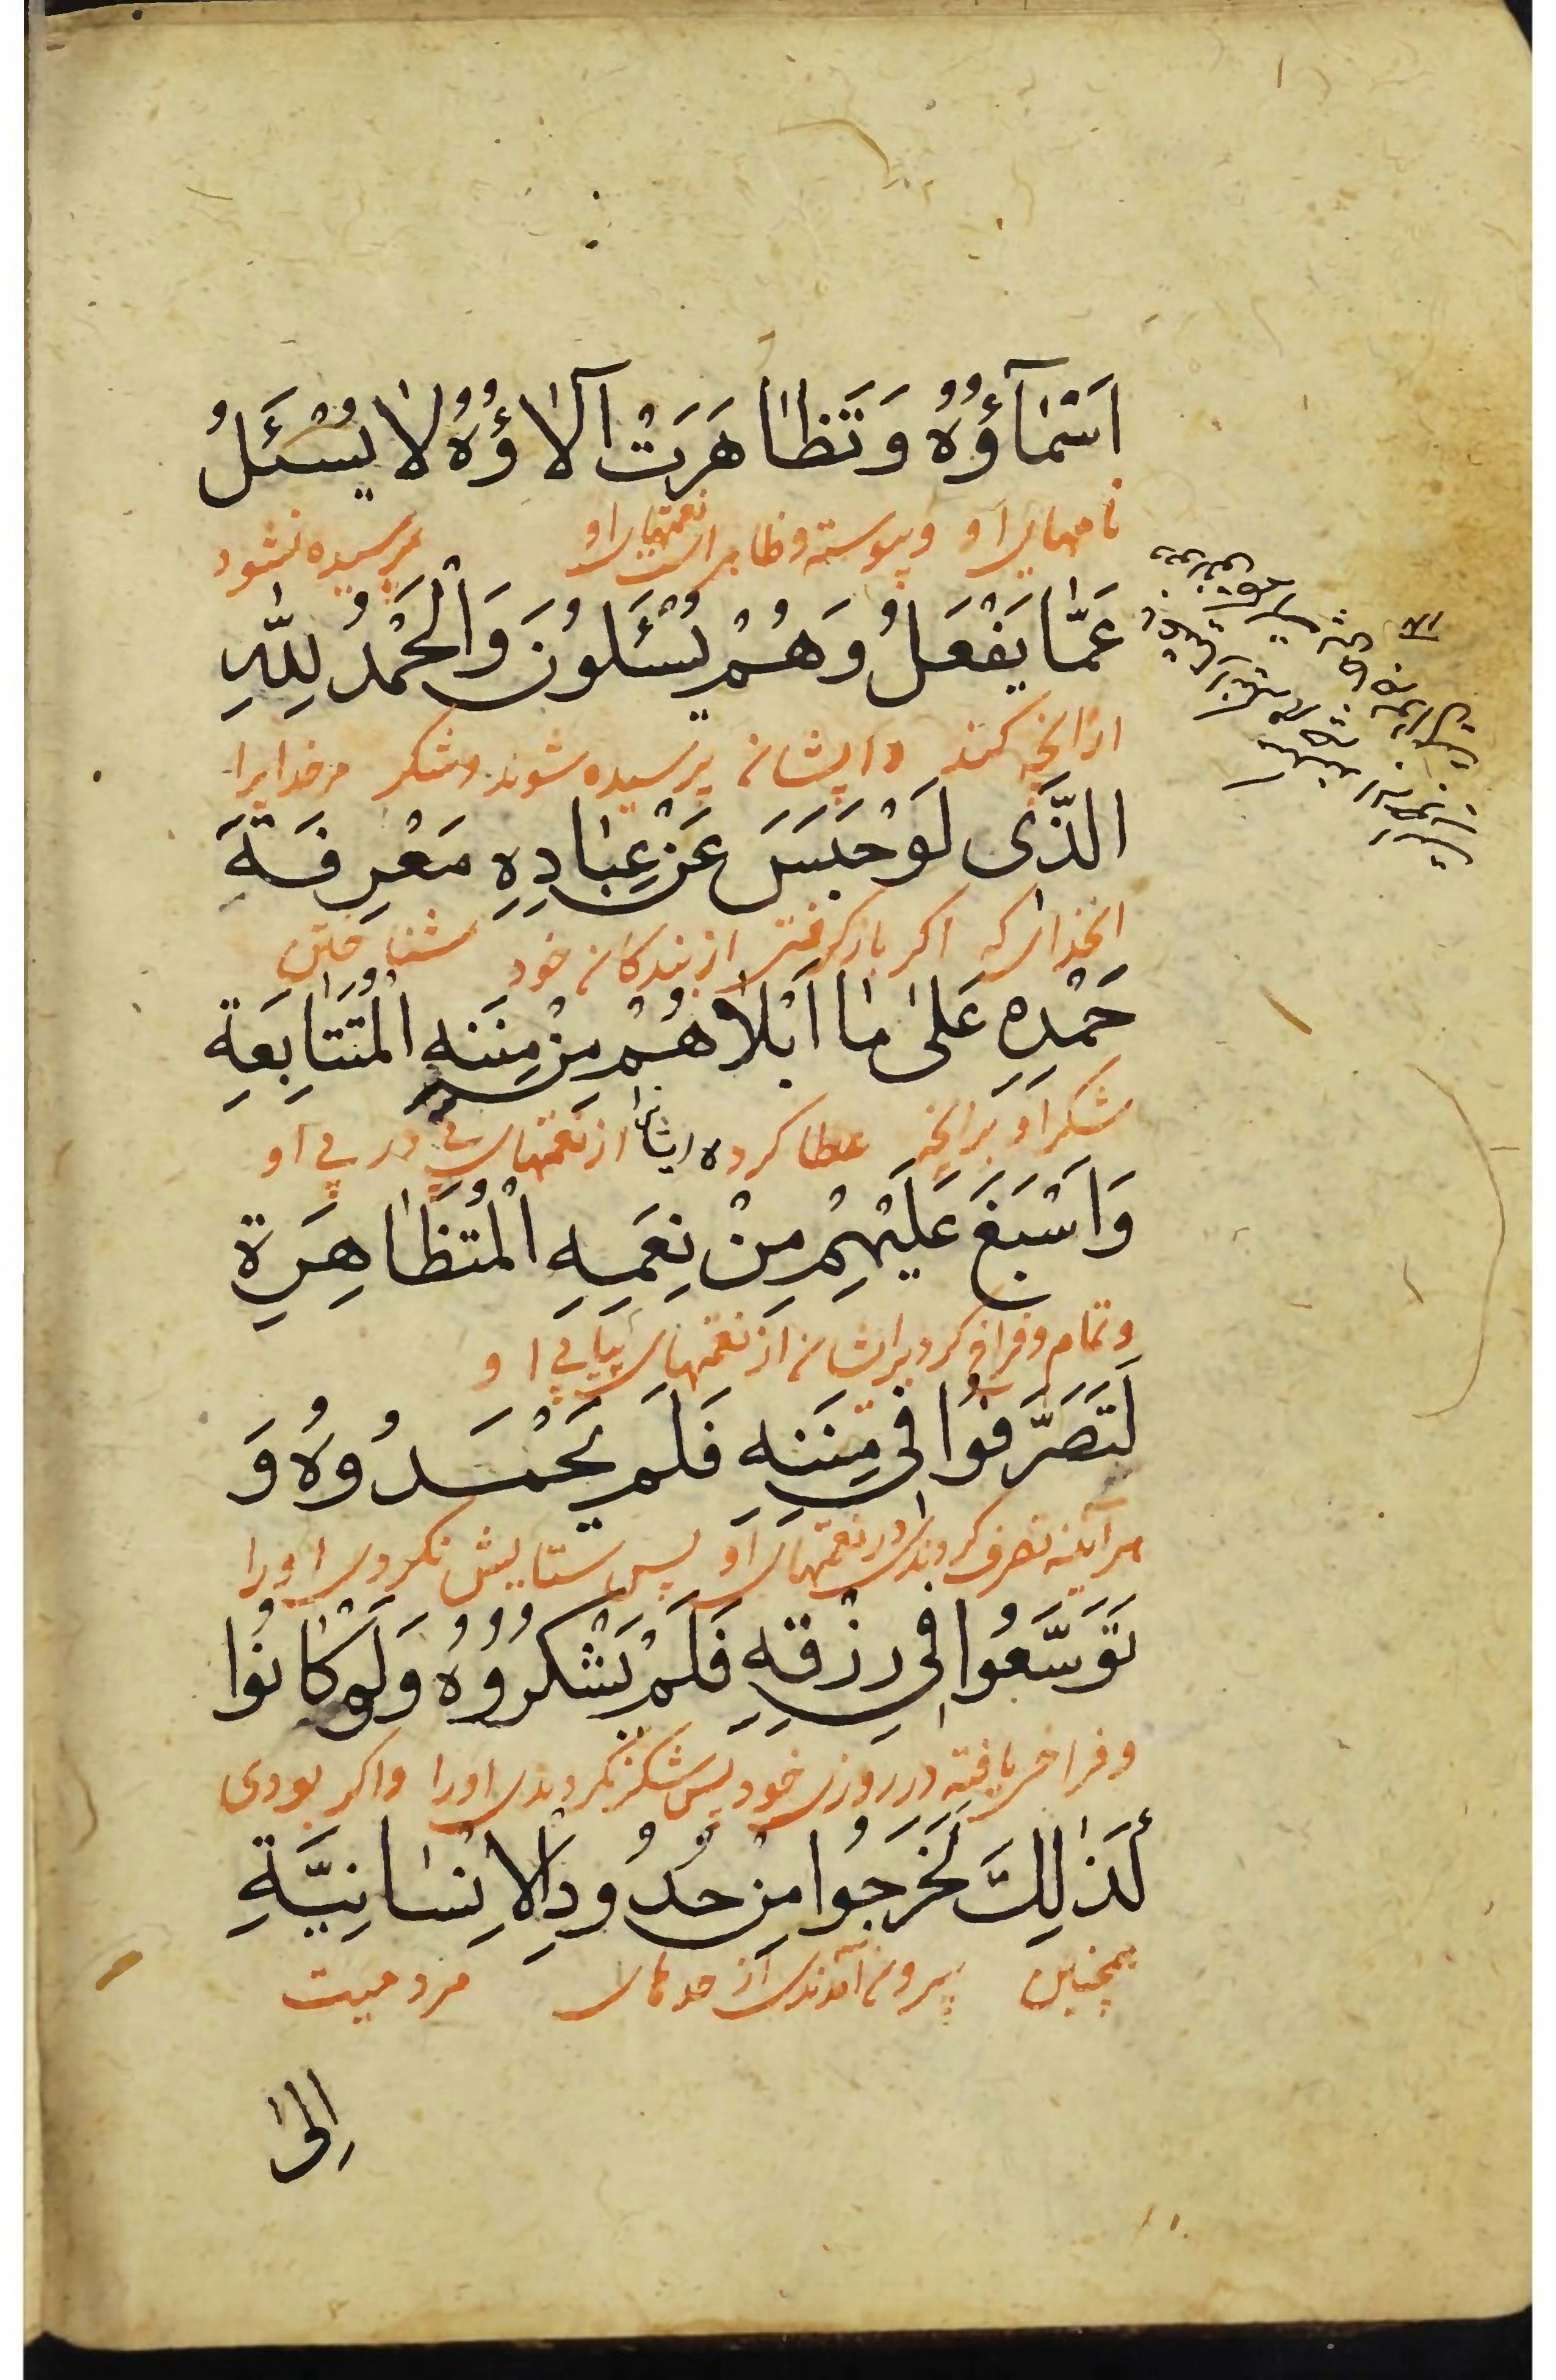 اَسْمٰآؤُهُ وَتَظٰاهَرَتْ آلٰاؤُهُ لٰا يُسْئَلُ
نامهای او و پیوسته و ظاهر است نعمتهای او پرسیده نشود
عَمّٰا يَفْعَلُ وَهُمْ يُسْئَلُونَ وَالْحَمْدُ لِلّٰهِ
از انچه کند و ایشان پرسیده شوند و شکر مر خدایرا
الَّذَى لَوْ حَبَسَ عَنْ عِبٰادِهِ مَعْرِفَةَ
انخدای که اکر باز کرفتی از بندکان خود شناختن
حَمْدِهِ عَلىٰ مٰا اَبْلٰاهُمْ مِنْ مِنَنِهِ الْمُتَتٰابِعَةِ
شکر او بر انچه عطا کرده ایشانرا از نعمتهای پی در پی او
وَاَسْبَغَ عَلَيْهِمْ مِنْ نِعَمِهِ الْمُتَظٰاهِرَةِ
و تمام و فراخ کرد بر ایشان از نعمتهای پیاپی او
لَتَصَرَّفُوا فِي مِنَنِهِ فَلَمْ يَحْمَدُوهُ وَ
هر آینه تصرف کردندی در نعمتهای او پس ستایش نکردی اورا
تَوَسَّعُوا فِي رِزْقِهِ فَلَمْ يَشْكُرُوُهُ وَلَوْ كٰانُوا
و فراخی یافته در روزی خود پس شکر نکردندی اورا و اکر بودی
كَذٰلِكَ لَخَرَجُوا مِنْ حُدُودِ الْاِنْسٰانِيَّةِ
همچنین بیرون آمدندی از حدهای مردمیت
اِلىٰ